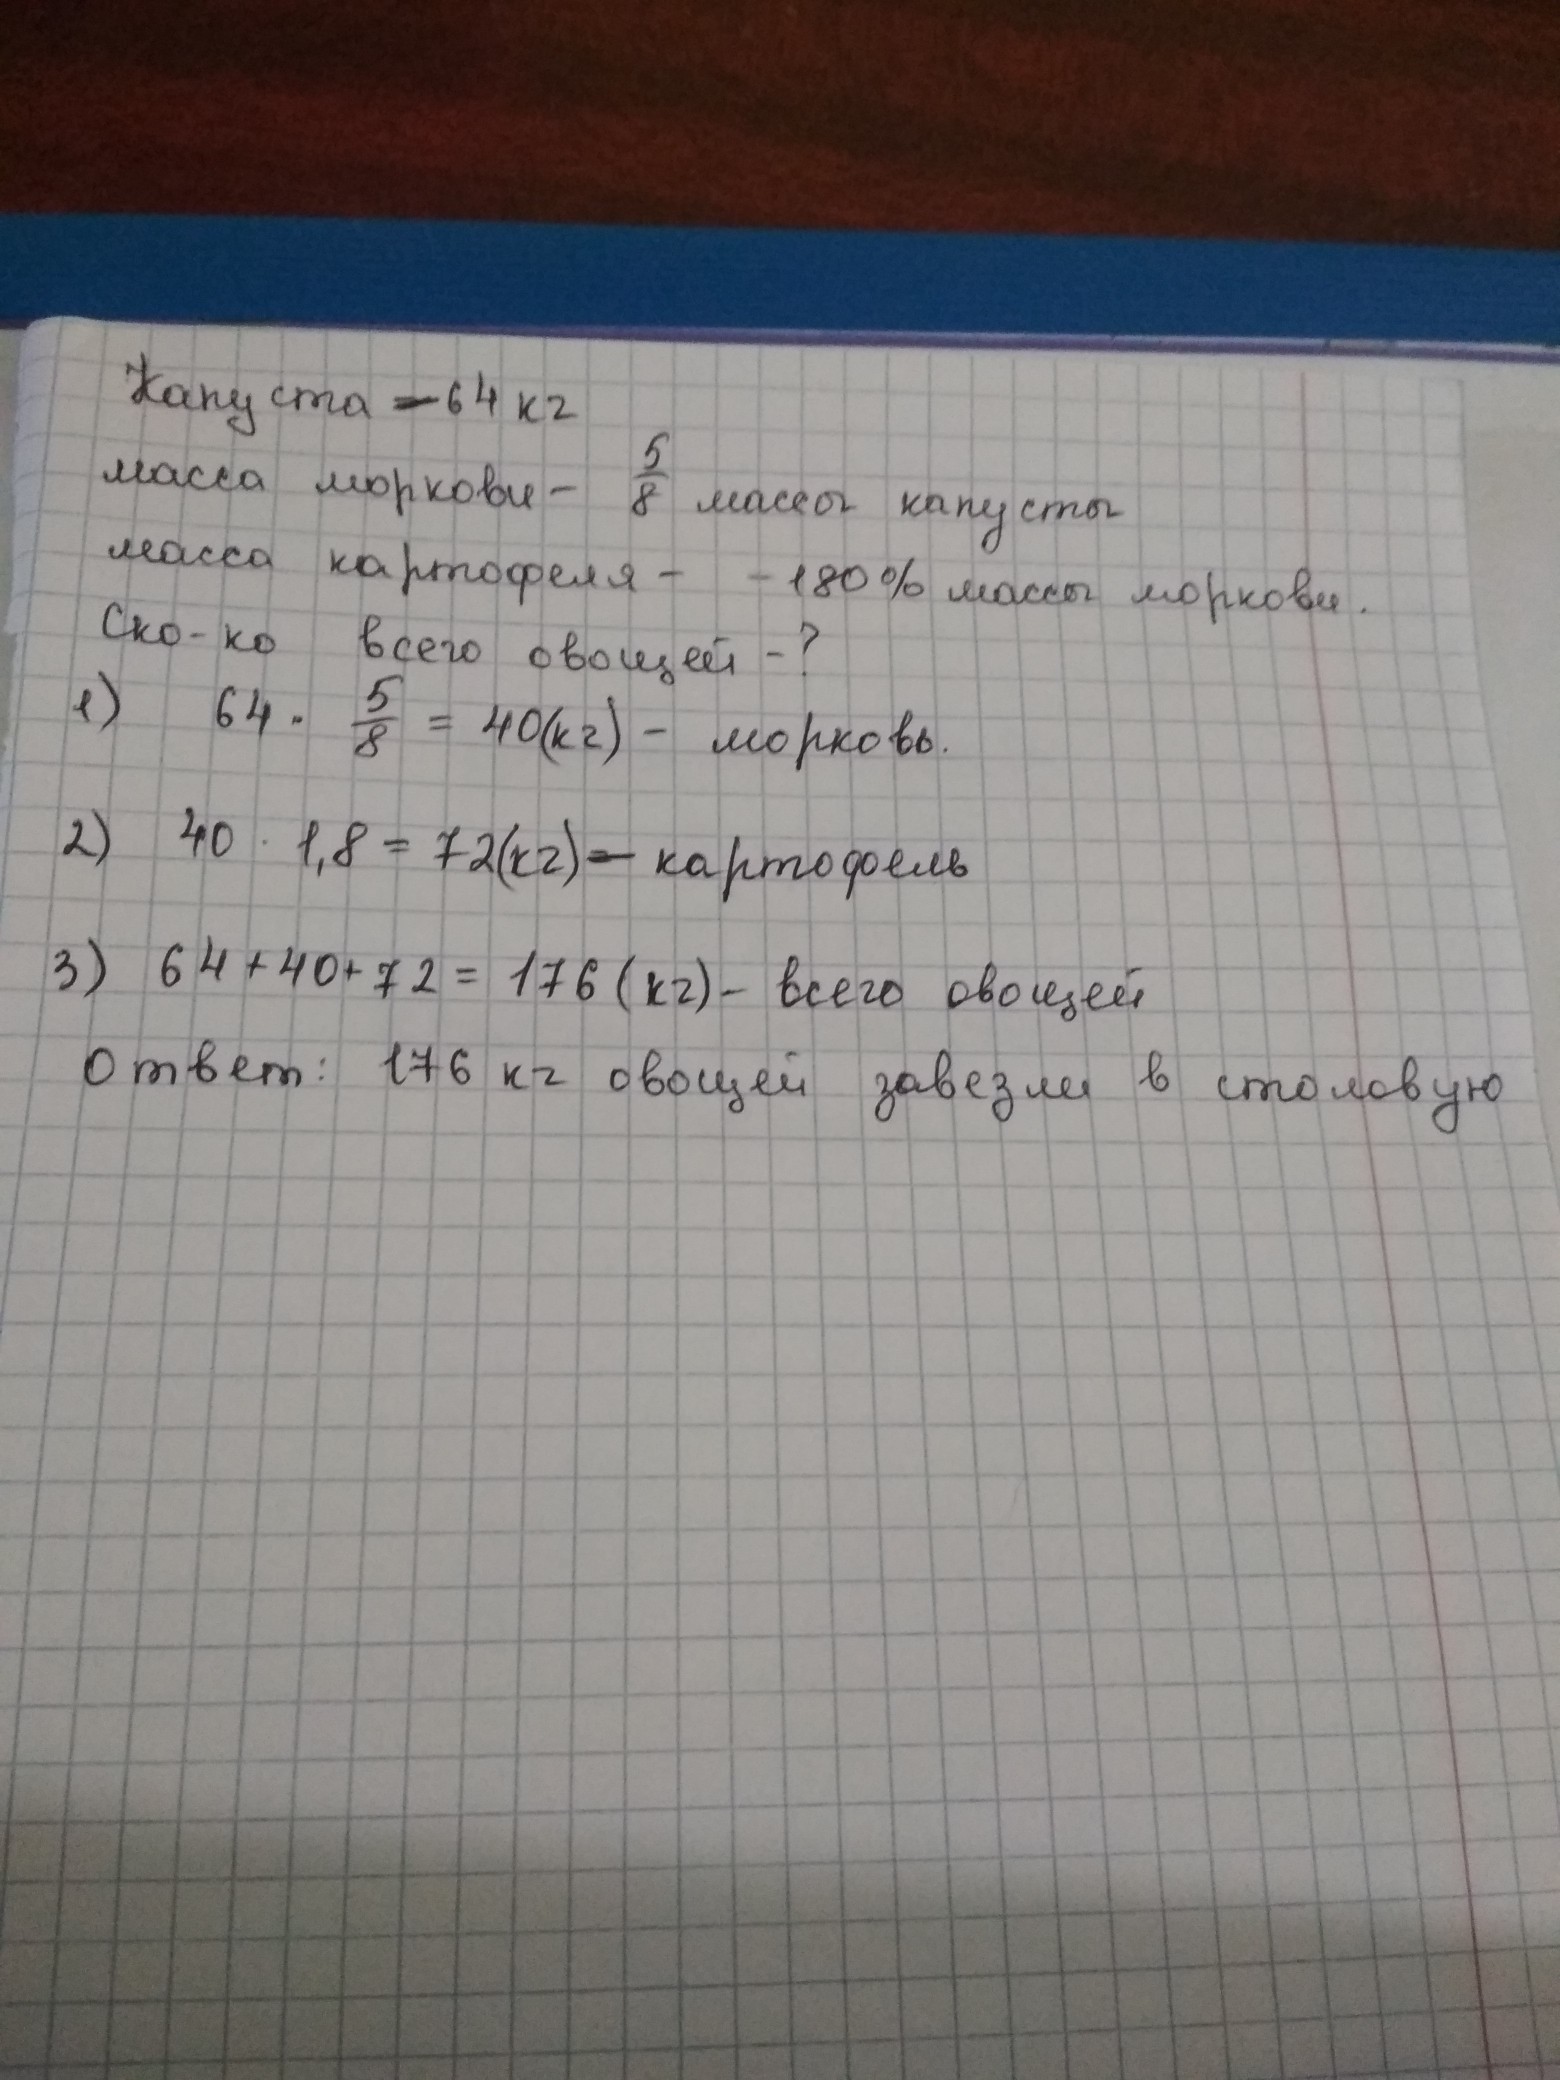 Капуста - 64 кг
масса моркови - 5/8 массы капусты
масса картофеля - - 180% массы моркови.
Ско-ко всего овощей - ?
1) 64 · 5/8 = 40(кг) - морковь.
2) 40 · 1,8 = 72(кг) - картофель
3) 64 + 40 + 72 = 176 (кг) - всего овощей
Ответ: 176 кг овощей завезли в столовую